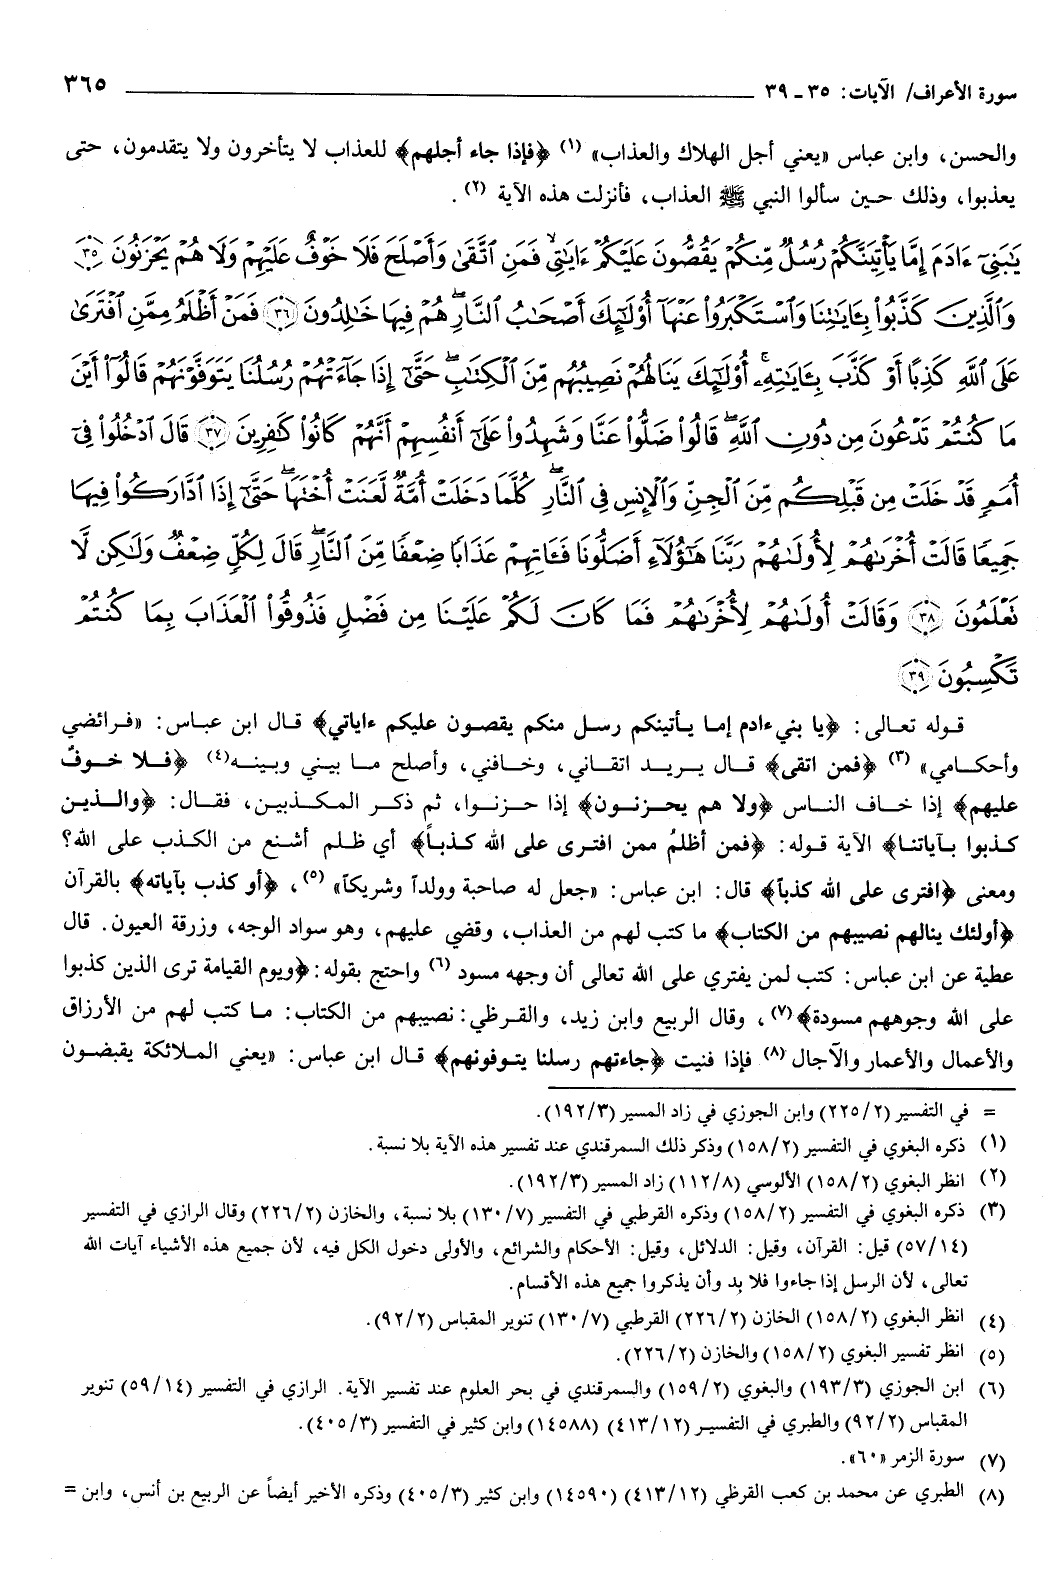 سورة الأعراف/ الآيات: ٣٥ ـ ٣٩ ٣٦٥
والحسن، وابن عباس «يعني أجل الهلاك والعذاب» (١) ﴿فإذا جاء أجلهم﴾ للعذاب لا يتأخرون ولا يتقدمون، حتى
يعذبوا، وذلك حين سألوا النبي ﷺ العذاب، فأنزلت هذه الآية (٢).
يَٰبَنِىٓ ءَادَمَ إِمَّا يَأْتِيَنَّكُمْ رُسُلٌ مِّنكُمْ يَقُصُّونَ عَلَيْكُمْ ءَايَٰتِىۙ فَمَنِ ٱتَّقَىٰ وَأَصْلَحَ فَلَا خَوْفٌ عَلَيْهِمْ وَلَا هُمْ يَحْزَنُونَ ﴿٣٥﴾
وَٱلَّذِينَ كَذَّبُوا۟ بِـَٔايَٰتِنَا وَٱسْتَكْبَرُوا۟ عَنْهَآ أُو۟لَٰٓئِكَ أَصْحَٰبُ ٱلنَّارِۖ هُمْ فِيهَا خَٰلِدُونَ ﴿٣٦﴾ فَمَنْ أَظْلَمُ مِمَّنِ ٱفْتَرَىٰ
عَلَى ٱللَّهِ كَذِبًا أَوْ كَذَّبَ بِـَٔايَٰتِهِۦٓۚ أُو۟لَٰٓئِكَ يَنَالُهُمْ نَصِيبُهُم مِّنَ ٱلْكِتَٰبِۖ حَتَّىٰٓ إِذَا جَآءَتْهُمْ رُسُلُنَا يَتَوَفَّوْنَهُمْ قَالُوٓا۟ أَيْنَ
مَا كُنتُمْ تَدْعُونَ مِن دُونِ ٱللَّهِۖ قَالُوا۟ ضَلُّوا۟ عَنَّا وَشَهِدُوا۟ عَلَىٰٓ أَنفُسِهِمْ أَنَّهُمْ كَانُوا۟ كَٰفِرِينَ ﴿٣٧﴾ قَالَ ٱدْخُلُوا۟ فِىٓ
أُمَمٍ قَدْ خَلَتْ مِن قَبْلِكُم مِّنَ ٱلْجِنِّ وَٱلْإِنسِ فِى ٱلنَّارِۖ كُلَّمَا دَخَلَتْ أُمَّةٌ لَّعَنَتْ أُخْتَهَاۖ حَتَّىٰٓ إِذَا ٱدَّارَكُوا۟ فِيهَا
جَمِيعًا قَالَتْ أُخْرَىٰهُمْ لِأُولَىٰهُمْ رَبَّنَا هَٰٓؤُلَآءِ أَضَلُّونَا فَـَٔاتِهِمْ عَذَابًا ضِعْفًا مِّنَ ٱلنَّارِۖ قَالَ لِكُلٍّ ضِعْفٌ وَلَٰكِن لَّا
نَعْلَمُونَ ﴿٣٨﴾ وَقَالَتْ أُولَىٰهُمْ لِأُخْرَىٰهُمْ فَمَا كَانَ لَكُمْ عَلَيْنَا مِن فَضْلٍ فَذُوقُوا۟ ٱلْعَذَابَ بِمَا كُنتُمْ
تَكْسِبُونَ ﴿٣٩﴾
قوله تعالى: ﴿يا بني ءادم إما يأتينكم رسل منكم يقصون عليكم ءاياتي﴾ قال ابن عباس: «فرائضي
وأحكامي» (٣) ﴿فمن اتقى﴾ قال يريد اتقاني، وخافني، وأصلح ما بيني وبينه (٤) ﴿فلا خوفٌ
عليهم﴾ إذا خاف الناس ﴿ولا هم يحزنون﴾ إذا حزنوا، ثم ذكر المكذبين، فقال: ﴿والذين
كذبوا بآياتنا﴾ الآية قوله: ﴿فمن أظلمُ ممن افترى على الله كذباً﴾ أي ظلم أشنع من الكذب على الله؟
ومعنى ﴿افترى على الله كذباً﴾ قال: ابن عباس: «جعل له صاحبة وولداً وشريكاً» (٥)، ﴿أو كذب بآياته﴾ بالقرآن
﴿أولئك ينالهم نصيبهم من الكتاب﴾ ما كتب لهم من العذاب، وقضي عليهم، وهو سواد الوجه، وزرقة العيون. قال
عطية عن ابن عباس: كتب لمن يفتري على الله تعالى أن وجهه مسود (٦) واحتج بقوله: ﴿ويوم القيامة ترى الذين كذبوا
على الله وجوههم مسودة﴾ (٧)، وقال الربيع وابن زيد، والقرظي: نصيبهم من الكتاب: ما كتب لهم من الأرزاق
والأعمال والأعمار والآجال (٨) فإذا فنيت ﴿جاءتهم رسلنا يتوفونهم﴾ قال ابن عباس: «يعني الملائكة يقبضون
= في التفسير (٢/٢٢٥) وابن الجوزي في زاد المسير (٣/١٩٢).
(١) ذكره البغوي في التفسير (٢/١٥٨) وذكر ذلك السمرقندي عند تفسير هذه الآية بلا نسبة.
(٢) انظر البغوي (٢/١٥٨) الألوسي (٨/١١٢) زاد المسير (٣/١٩٢).
(٣) ذكره البغوي في التفسير (٢/١٥٨) وذكره القرطبي في التفسير (٧/١٣٠) بلا نسبة، والخازن (٢/٢٢٦) وقال الرازي في التفسير
(١٤/٥٧) قيل: القرآن، وقيل: الدلائل، وقيل: الأحكام والشرائع، والأولى دخول الكل فيه، لأن جميع هذه الأشياء آيات الله
تعالى، لأن الرسل إذا جاءوا فلا بد وأن يذكروا جميع هذه الأقسام.
(٤) انظر البغوي (٢/١٥٨) الخازن (٢/٢٢٦) القرطبي (٧/١٣٠) تنوير المقباس (٢/٩٢).
(٥) انظر تفسير البغوي (٢/١٥٨) والخازن (٢/٢٢٦).
(٦) ابن الجوزي (٣/١٩٣) والبغوي (٢/١٥٩) والسمرقندي في بحر العلوم عند تفسير الآية. الرازي في التفسير (١٤/٥٩) تنوير
المقباس (٢/٩٢) والطبري في التفسير (١٢/٤١٣) (١٤٥٨٨) وابن كثير في التفسير (٣/٤٠٥).
(٧) سورة الزمر «٦٠».
(٨) الطبري عن محمد بن كعب القرظي (١٢/٤١٣) (١٤٥٩٠) وابن كثير (٣/٤٠٥) وذكره الأخير أيضاً عن الربيع بن أنس، وابن =